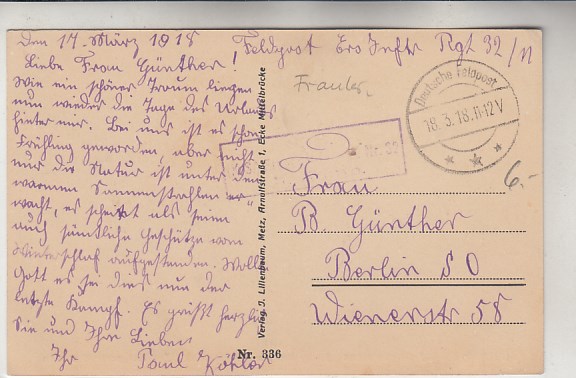 Den 17. März 1918 Feldpost Ers Inftr Rgt 32/11
Liebe Frau Günther!
Wie ein schöner Traum liegen
nun wieder die Tage des Urlaubs
hinter mir. Bei uns ist es schon
Frühling geworden, aber nicht
nur die Natur ist unter den
warmen Sonnenstrahlen er-
wacht, es scheint als seien
auch sämtliche Geschütze vom
Winterschlaf aufgestanden. Wolle
Gott es sei dies nun der
letzte Kampf. Es grüßt herzlich
Sie und Ihre Lieben
Ihr Paul Köhler
Deutsche Feldpost
18.3.18.11-12V
6.-
Frau
B. Günther
Berlin SO
Wienerstr 58
Verlag J. Lilienbaum, Metz, Arnulfstraße 1, Ecke Mittelbrücke
Nr. 336